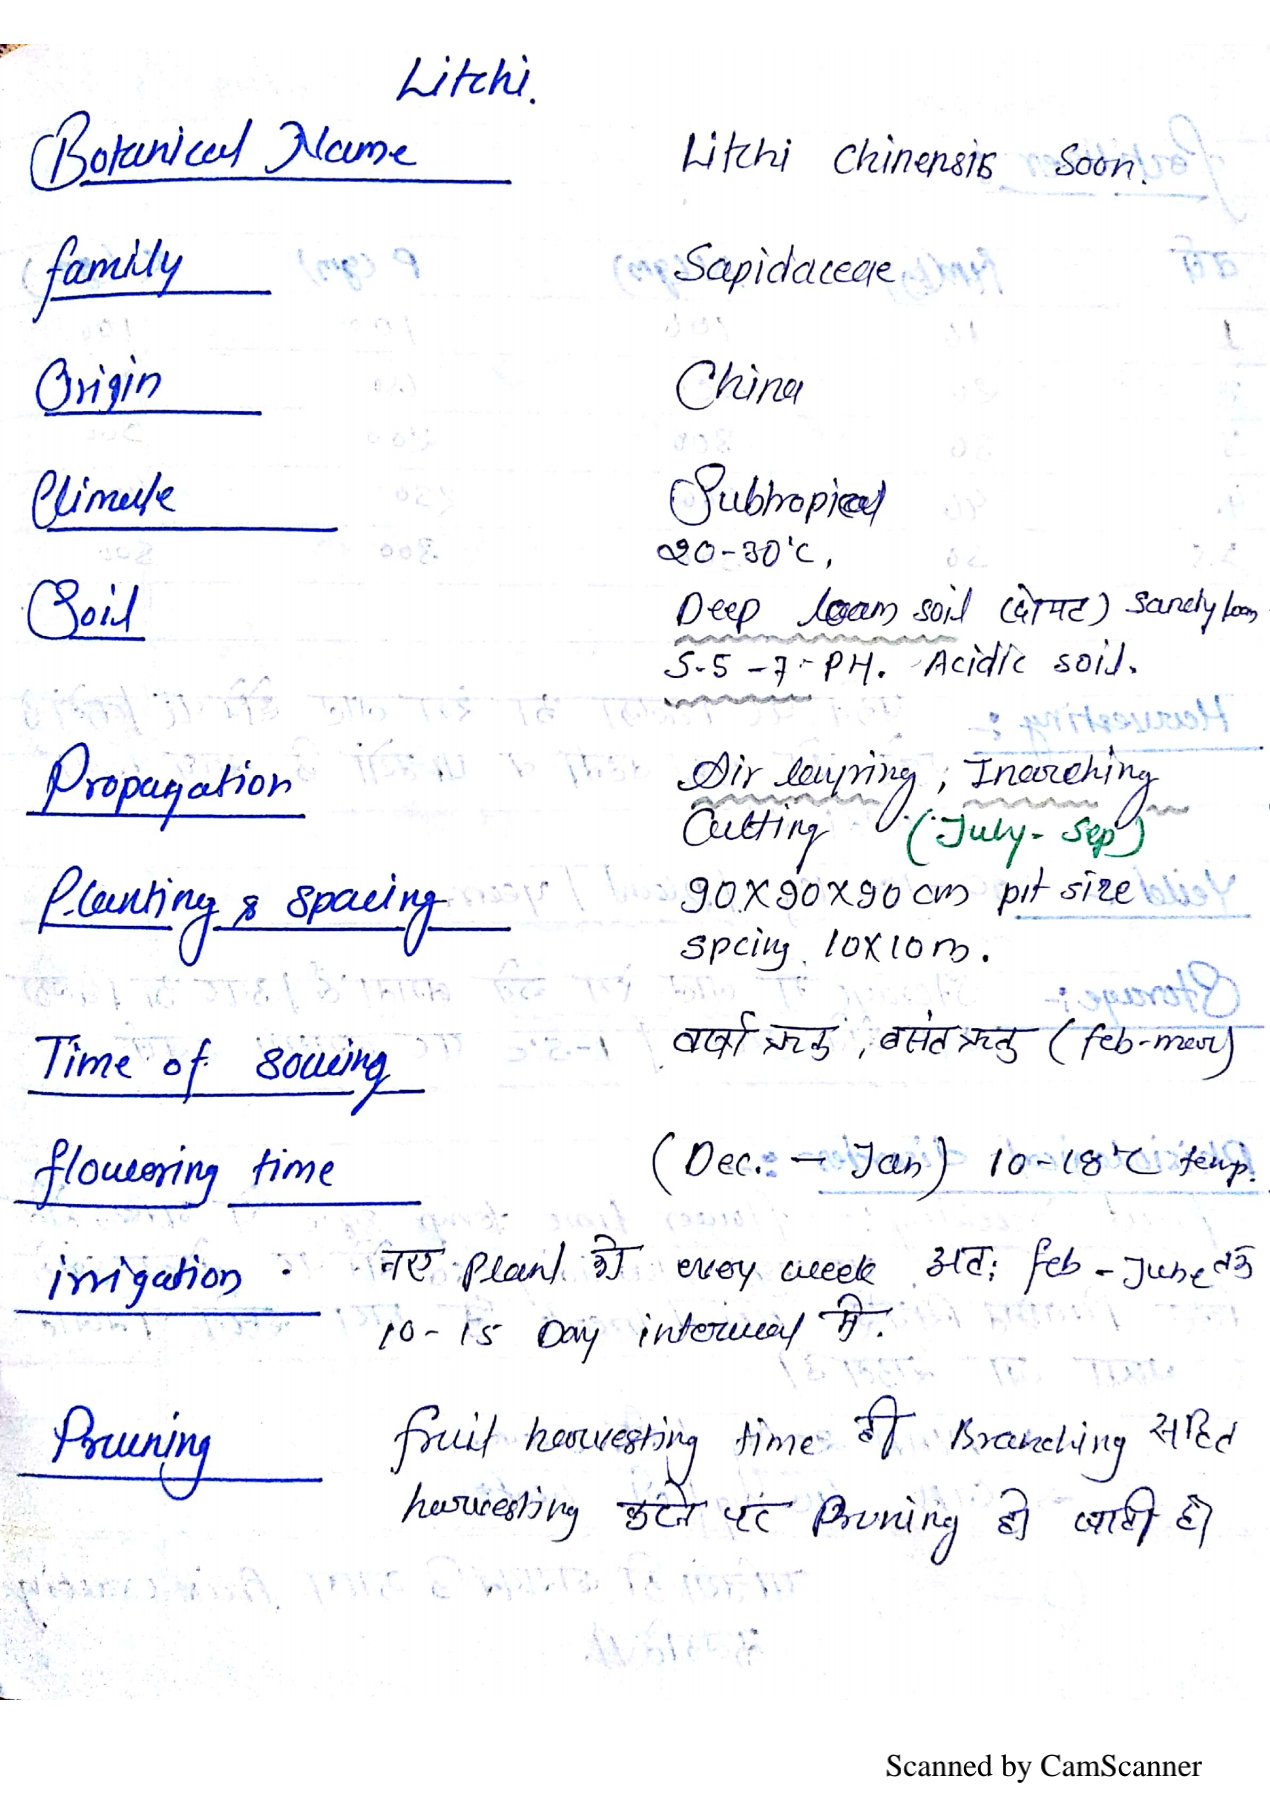 Litchi.
Botanical Name Litchi Chinensis Soon.
family Sapidaceae
Origin China
Climate Subtropical
20-30°C,
Soil Deep loam soil (दोमट) Sandy loam
5.5 - 7 - PH. Acidic soil.
Propagation Air layring, Inarching
Cutting (July- Sep)
Planting & spacing 90X90X90 cm pit size
spcing 10X10m.
Time of sowing वर्षा ऋतु, बसंत ऋतु (feb-mar)
flowering time (Dec. - Jan) 10-18°C temp.
irrigation . नए Plant को every week अतः feb - June तक
10-15 Day interval में.
Pruning fruit harvesting time ही Branching सहित
harvesting करने पर Pruning हो जाती है।
Scanned by CamScanner